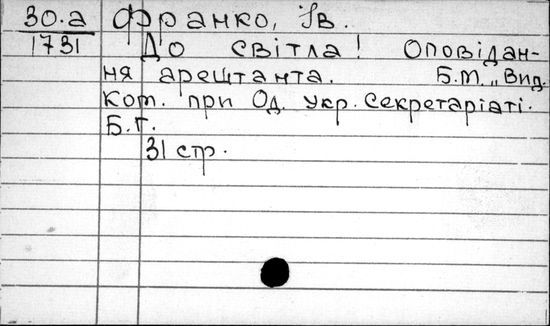 30.а Франко, Ів.
1731 До світла! Оповідан-
ня арештанта. Б.М., Вид.
Ком. при Од. Укр. Секретаріаті.
Б.Г.
31 стр.